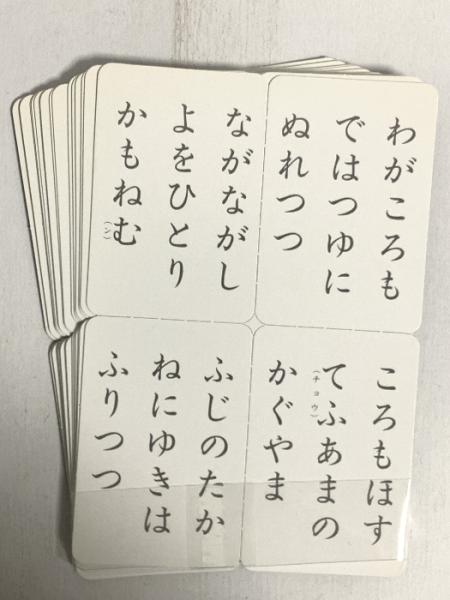 わがころも
ではつゆに
ぬれつつ
ながながし
よをひとり
かもねむ
(ン)
ころもほす
てふあまの
(チョウ)
かぐやま
ふじのたか
ねにゆきは
ふりつつ